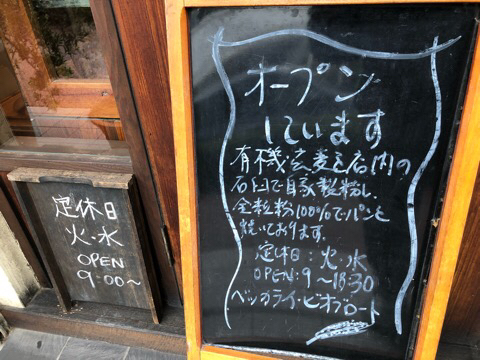 オープン
しています
有機玄麦を店内の
石臼で自家製粉し、
全粒粉100%でパンを
焼いております。
定休日:火・水
OPEN:9〜18:30
ベッカライ・ビオブロート
定休日
火・水
OPEN
9:00〜